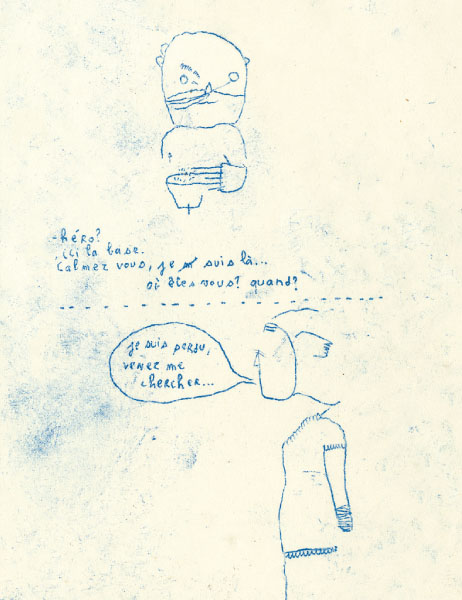 -héro?
ici la base.
Calmez vous, je suis là...
où êtes vous? quand?
je suis perdu,
venez me
chercher...